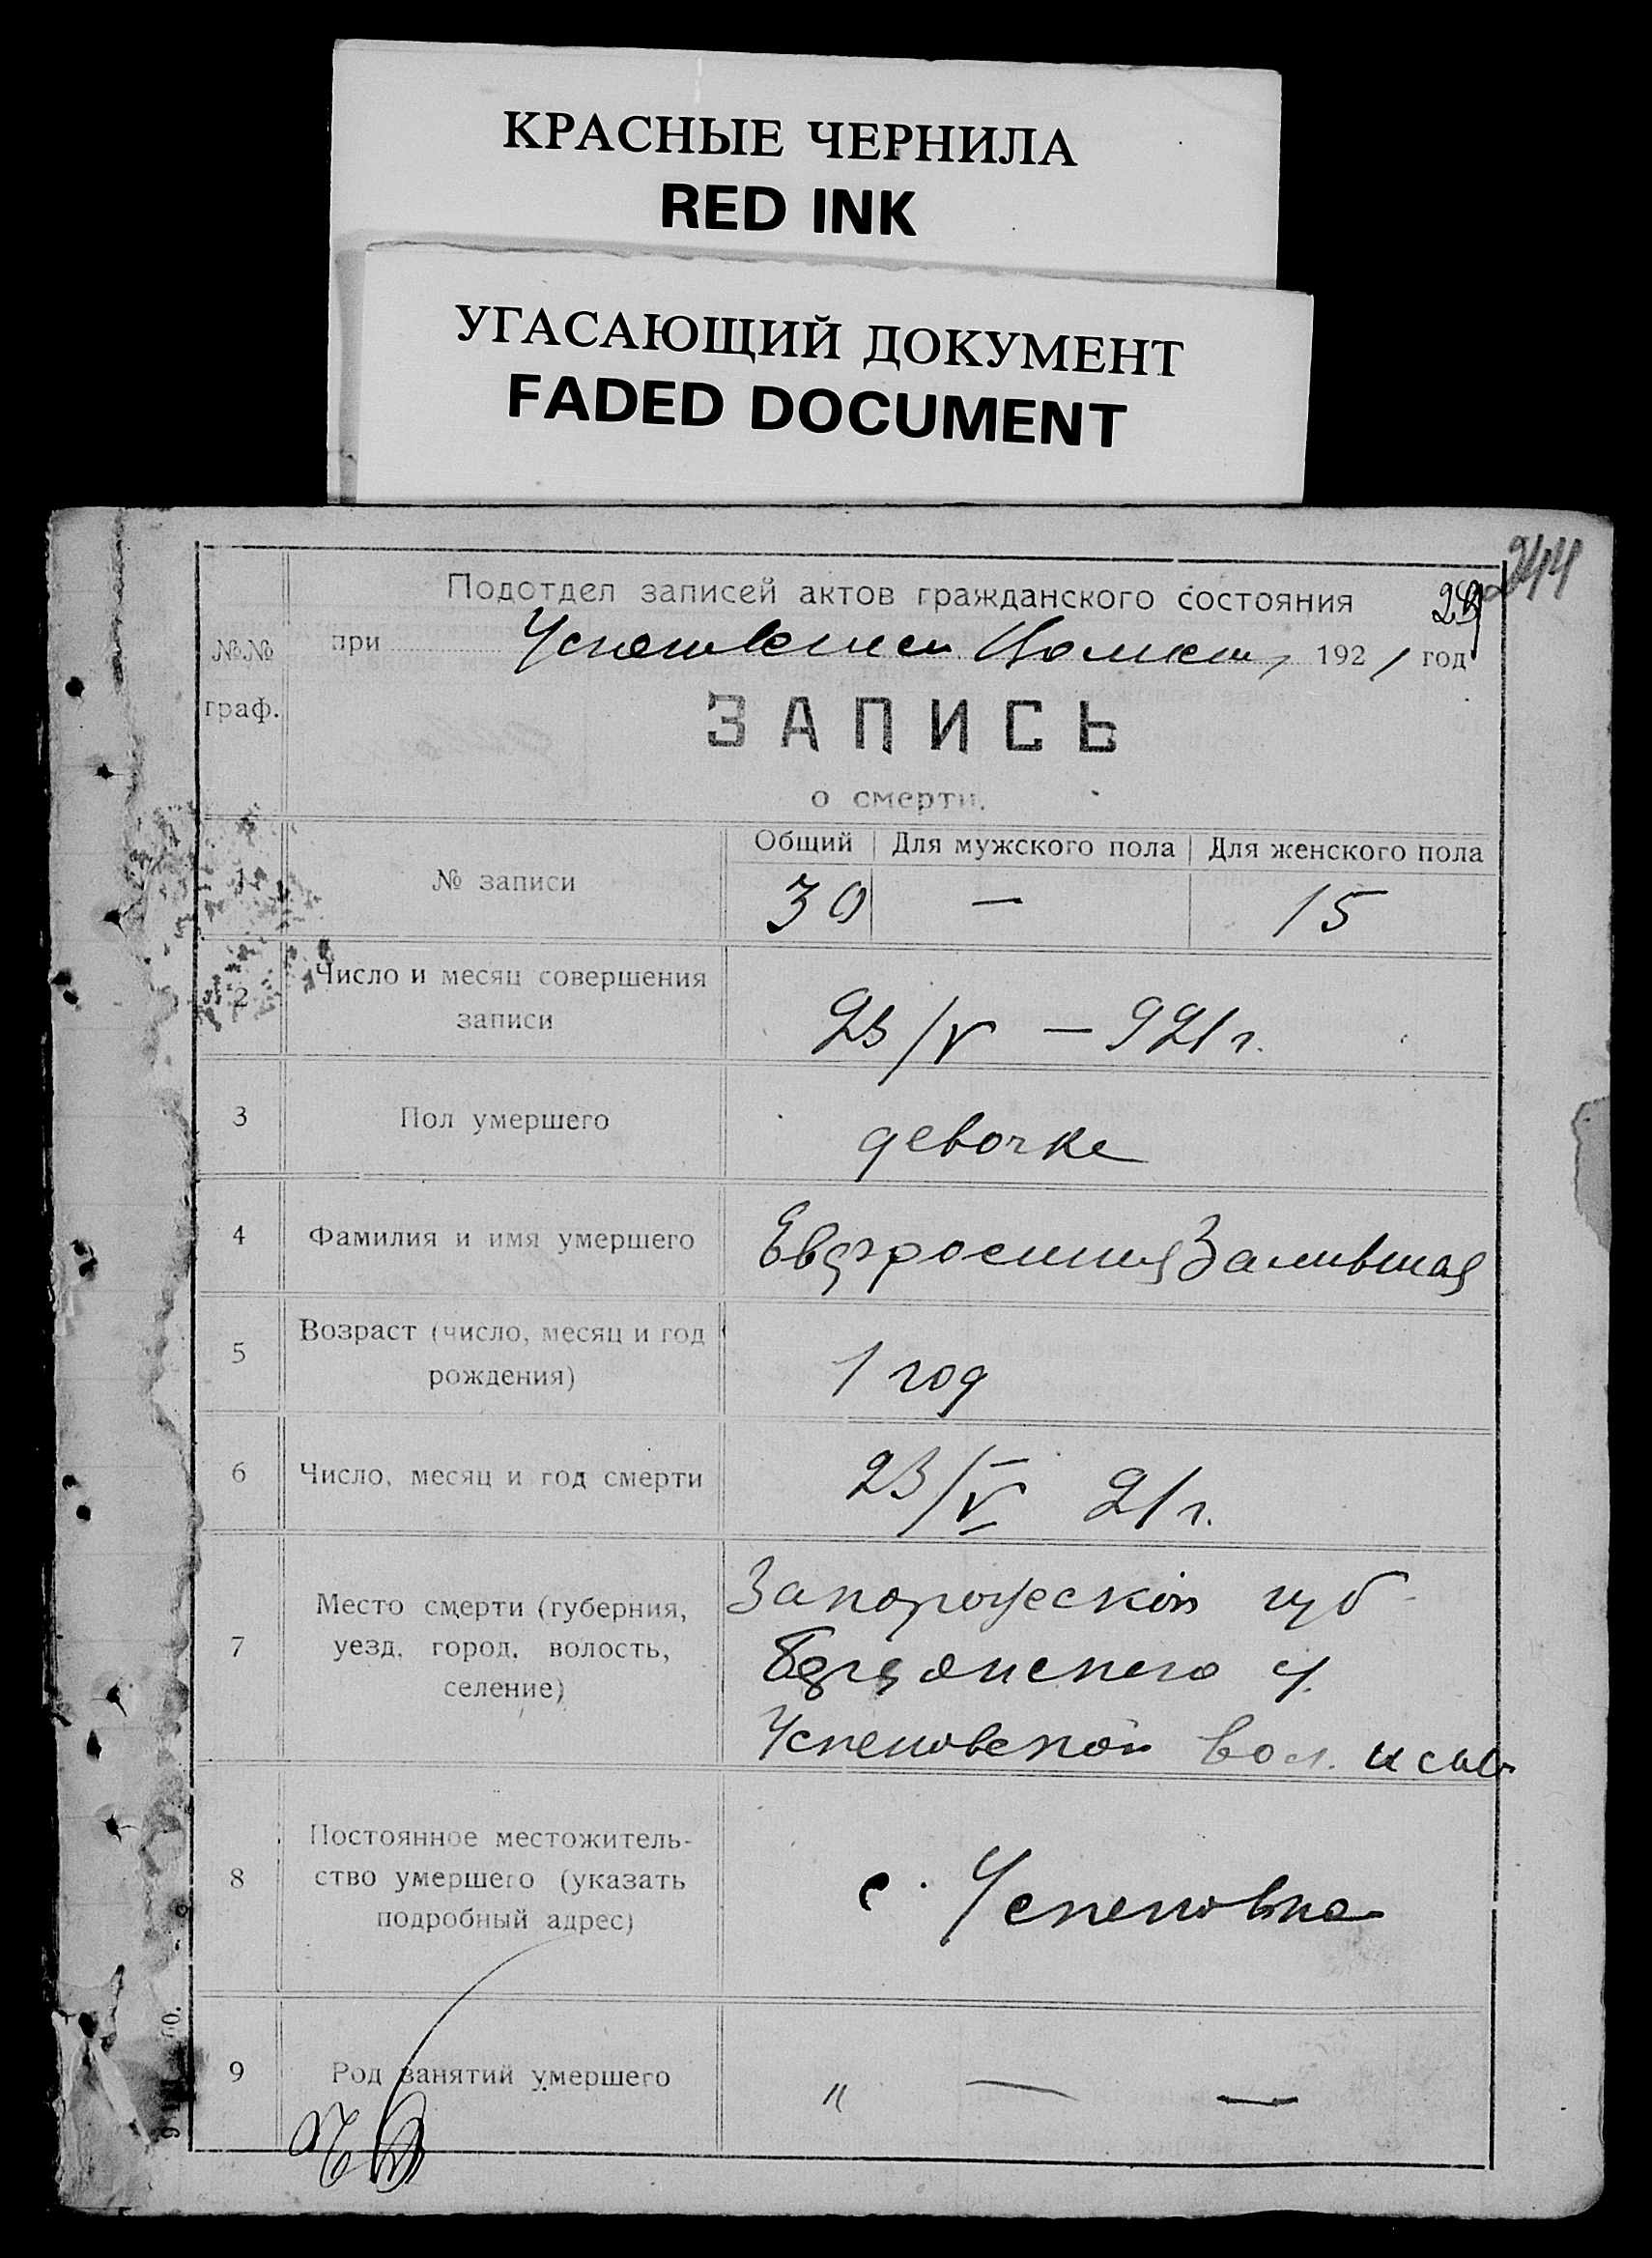 КРАСНЫЕ ЧЕРНИЛА
RED INK
УГАСАЮЩИЙ ДОКУМЕНТ
FADED DOCUMENT
244
Подотдел записей актов гражданского состояния
№№ граф.
при 1921 год
ЗАПИСЬ
о смерти.
Общий Для мужского пола Для женского пола
1 № записи 30 — 15
2 Число и месяц совершения
записи 23/V — 921 г.
3 Пол умершего девочка
4 Фамилия и имя умершего Евфросиния
5 Возраст (число, месяц и год
рождения) 1 год
6 Число, месяц и год смерти 23/V 21 г.
7 Место смерти (губерния,
уезд, город, волость,
селение)
Запорожской губ.
Бердянского у.
Успеновской вол. и
8 Постоянное местожитель-
ство умершего (указать
подробный адрес)
с. Успеновка
9 Род занятий умершего " — —